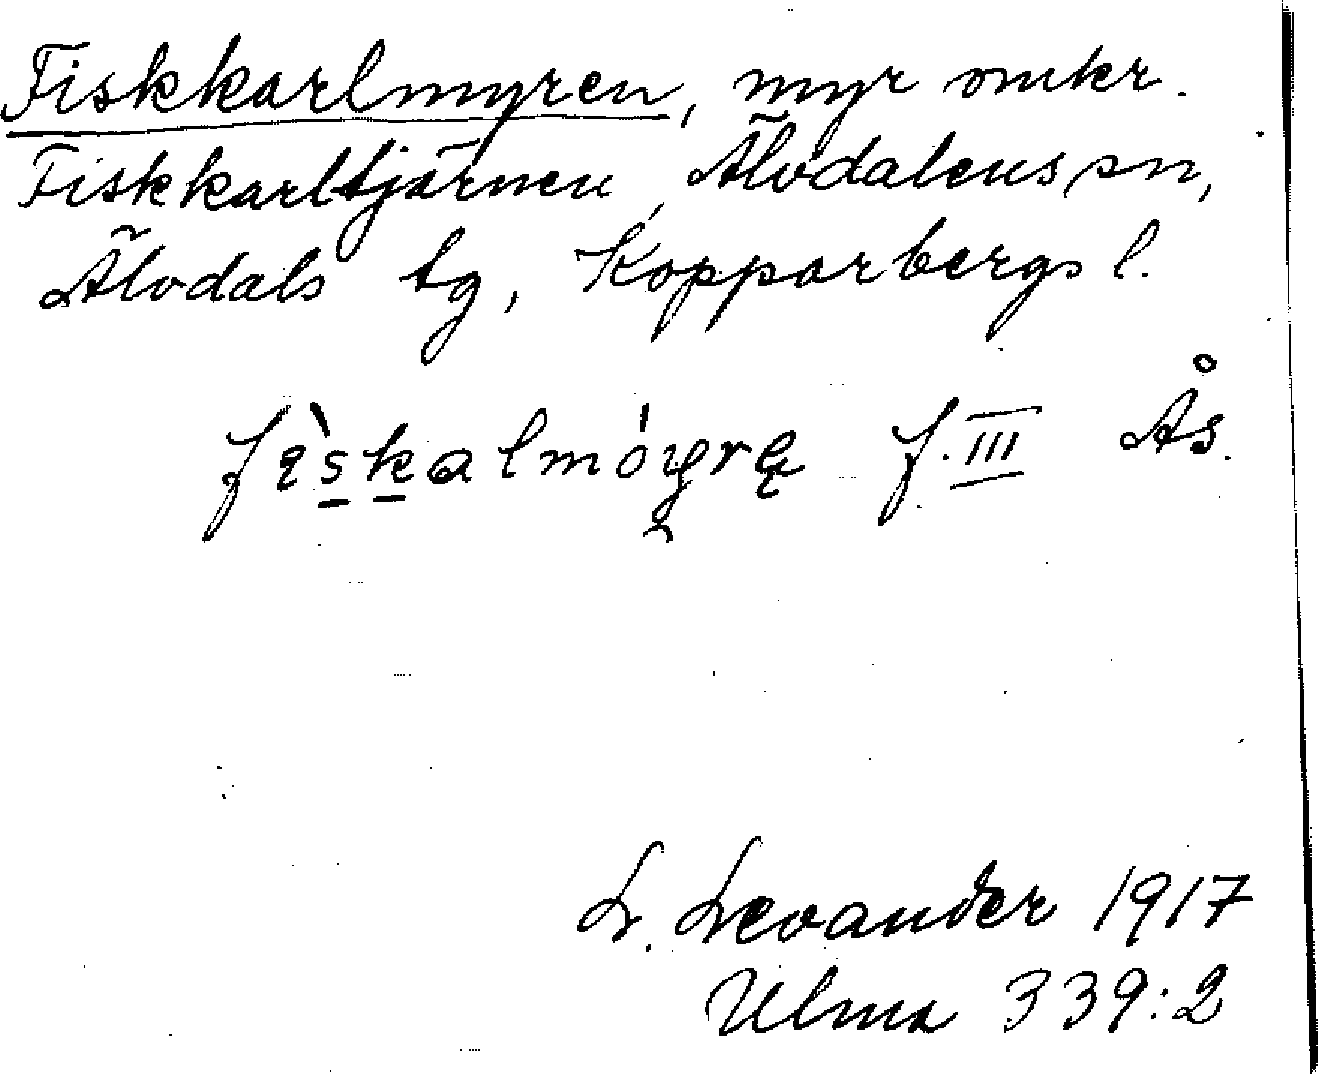 Fiskkarlmyren, myr omkr.
Fiskkarltjärnen, Älvdalens sn,
Älvdals tg, Kopparbergs l.
f. III Ås.
L. Levander 1917
Ulma 339:2